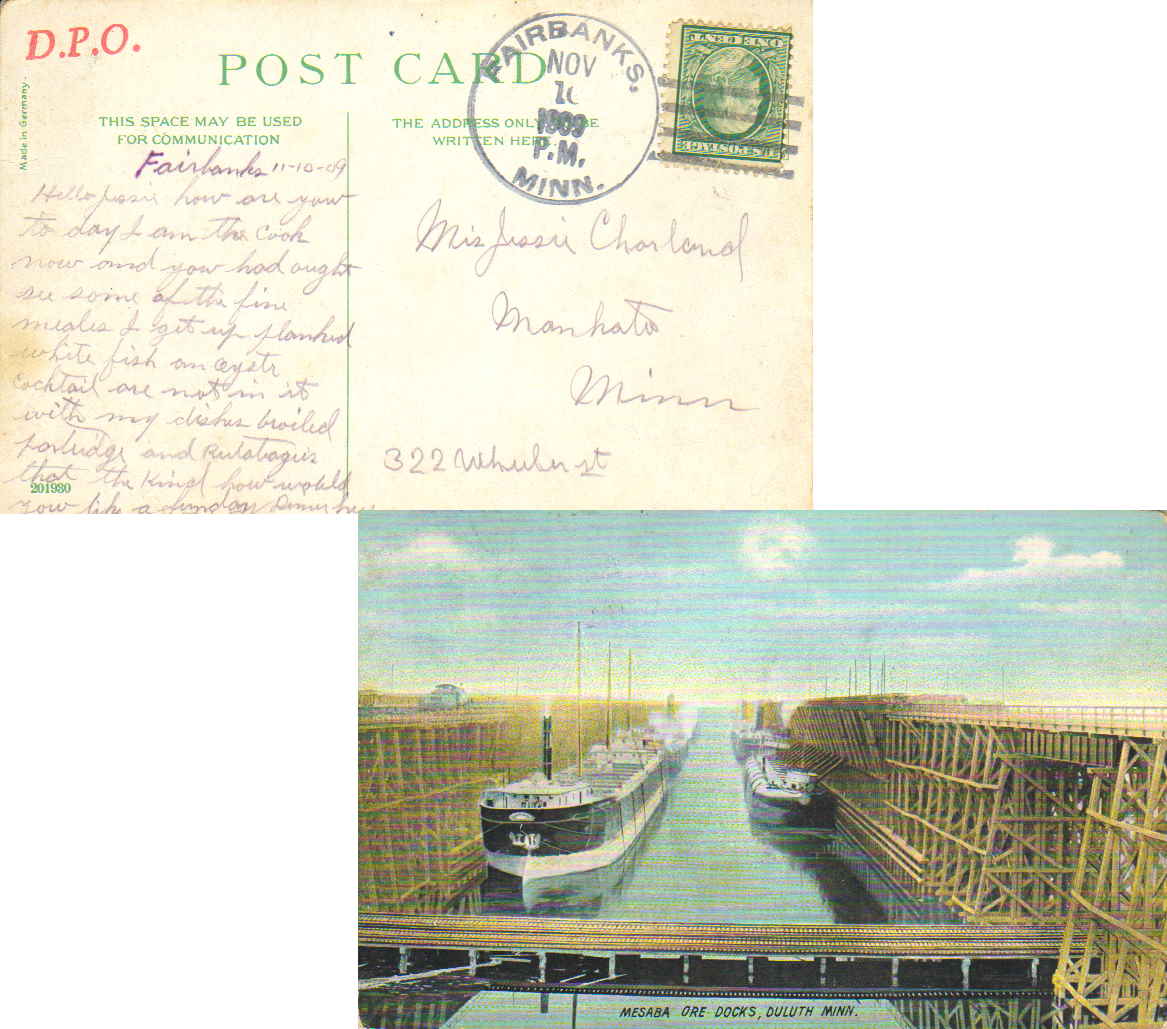 D.P.O.
POST CARD
Made in Germany.
THIS SPACE MAY BE USED
FOR COMMUNICATION
THE ADDRESS ONLY BE
WRITTEN HERE.
FAIRBANKS.
NOV
10
1909
P.M.
MINN.
ONE CENT
U.S. POSTAGE
Fairbanks 11-10-09
Hello Jessie how are yow
to day I am the Cook
now and yow had ought
see some of the fine
meales I get up planked
white fish an oystr
Cocktail are not in it
with my dishes broiled
partridge and Rutabagies
that the Kind how would
yow like a Sunday Dinner
201930
Mis Jessie Charland
Mankato
Minn
322 Wheeler st
MESABA ORE DOCKS, DULUTH MINN.